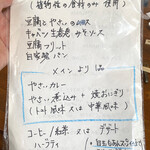 (植物性の食材のみ使用)
豆腐とやさいの
キャベツ生春巻 サモソース
豆腐フリット
自家製パン
メインより1品
やさいカレー
やさい煮込み + 焼おにぎり
(トマト風味 又は 中華風味)
コーヒー/紅茶 又は デザート
ハーブティ